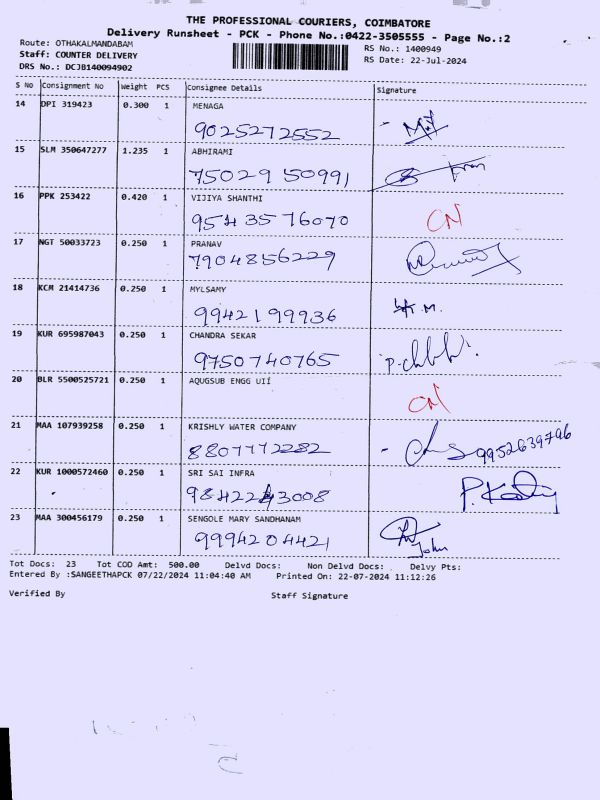 THE PROFESSIONAL COURIERS, COIMBATORE
Delivery Runsheet - PCK - Phone No.:0422-3505555 - Page No.:2
Route: OTHAKALMANDABAM
Staff: COUNTER DELIVERY
DRS No.: DCJB140094902
RS No.: 1400949
RS Date: 22-Jul-2024
S No Consignment No Weight PCS Consignee Details Signature
14 DPI 319423 0.300 1 MENAGA
9025272552
15 SLM 350647277 1.235 1 ABHIRAMI
75029 50991
16 PPK 253422 0.420 1 VIJIYA SHANTHI
95435 76070 CN
17 NGT 50033723 0.250 1 PRANAV
7904856229
18 KCM 21414736 0.250 1 MYLSAMY
9942199936
19 KUR 695987043 0.250 1 CHANDRA SEKAR
9750740765
20 BLR 5500525721 0.250 1 AQUGSUB ENGG UII
CN
21 MAA 107939258 0.250 1 KRISHLY WATER COMPANY
8807772282 9952639796
22 KUR 1000572460 0.250 1 SRI SAI INFRA
23 MAA 300456179 0.250 1 SENGOLE MARY SANDHANAM
9994204421 John
Tot Docs: 23 Tot COD Amt: 500.00 Delvd Docs: Non Delvd Docs: Delvy Pts:
Entered By :SANGEETHAPCK 07/22/2024 11:04:40 AM Printed On: 22-07-2024 11:12:26
Verified By Staff Signature